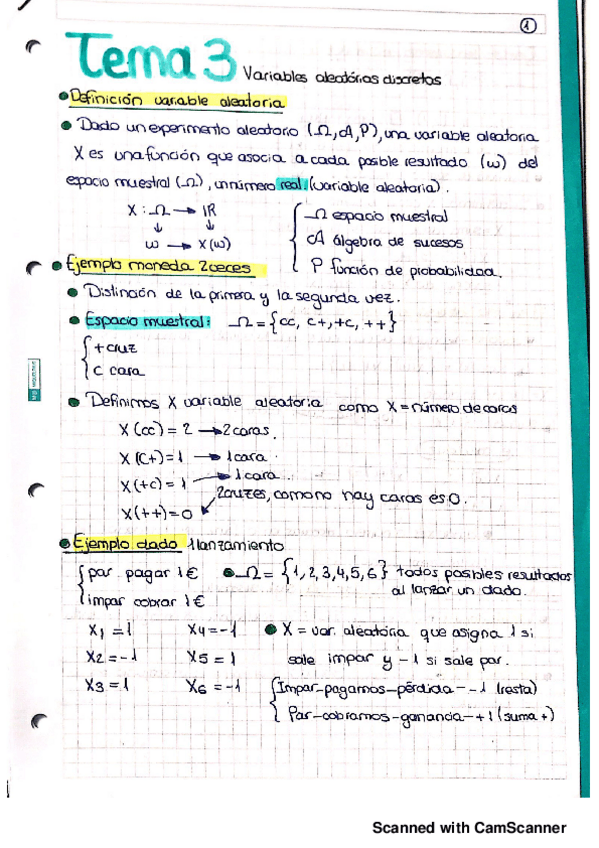 1
Tema 3 Variables aleatórias discretas
Definición variable aleatoria
Dado un experimento aleatorio (Ω, A, P), una variable aleatoria
X es una función que asocia a cada posible resultado (ω) del
espacio muestral (Ω), un número real. (variable aleatoria).
X : Ω → IR
↓ ↓
ω → X(ω)
{ Ω espacio muestral
A álgebra de sucesos
P función de probabilidad.
Ejemplo moneda 2 veces
Distinción de la primera y la segunda vez.
Espacio muestral: Ω = {cc, c+, +c, ++}
{ + cruz
c cara
Definimos X variable aleatoria como X = número de caras
X (cc) = 2 → 2 caras.
X (c+) = 1 → 1 cara.
X (+c) = 1 → 1 cara.
2 cruzes, como no hay caras es 0.
X (++) = 0
Ejemplo dado 1 lanzamiento
{ par pagar 1€
impar cobrar 1€
Ω = {1, 2, 3, 4, 5, 6} todos posibles resultados
al lanzar un dado.
X1 = 1 X4 = -1
X2 = -1 X5 = 1
X3 = 1 X6 = -1
X = var. aleatória que asigna 1 si
sale impar y -1 si sale par.
{ Impar-pagamos-pérdida- -1 (resta)
Par-cobramos-ganancia- +1 (suma +)
Scanned with CamScanner